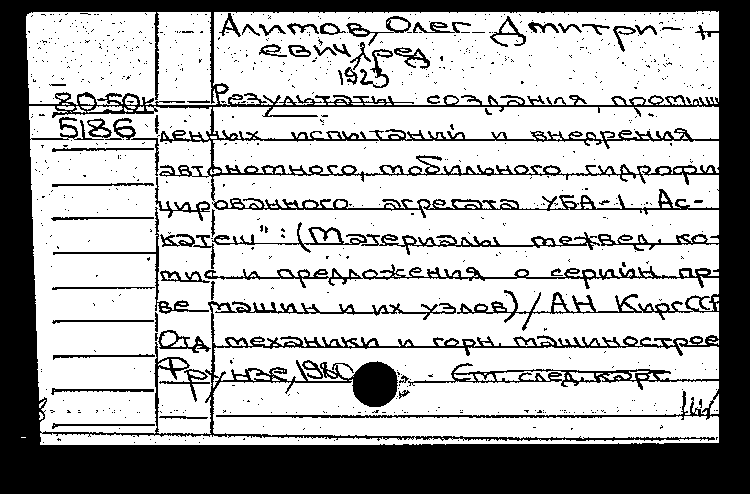 Алимов, Олег Дмитри-
евич, ред.
1923
80-50к Результаты создания, промыш
5186 ленных испытаний и внедрения
автономного, мобильного, гидрофи
цированного агрегата УБА-1 „Ас-
катеш" : (Материалы межвед. ко-
мис. и предложения о серийн. пр-
ве машин и их узлов) / АН КиргССР
Отд механики и горн. машинострое
Фрунзе, 1980 См. след. карт.